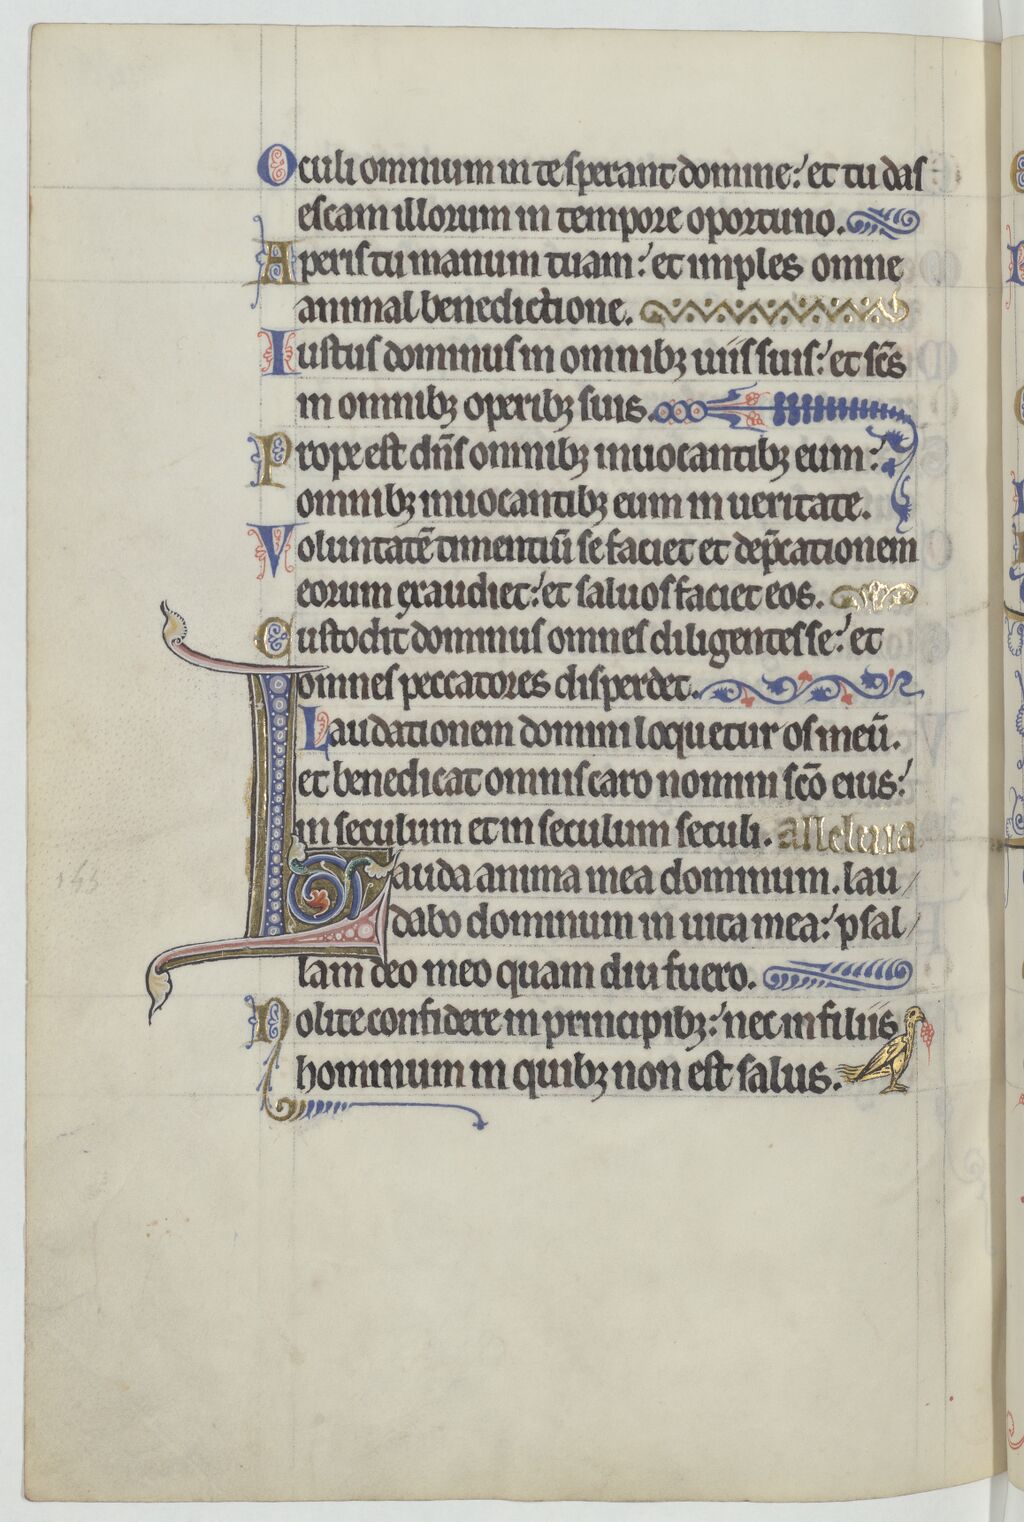 Oculi omnium in te sperant domine: et tu das
escam illorum in tempore oportuno.
Aperis tu manum tuam: et imples omne
animal benedictione.
Iustus dominus in omnibꝫ uiis suis: et sc̄s
in omnibꝫ operibꝫ suis.
Prope est dn̄s omnibꝫ inuocantibꝫ eum:
omnibꝫ inuocantibꝫ eum in ueritate.
Voluntatē timentiū se faciet et dep̄cationem
eorum exaudiet: et saluos faciet eos.
Custodit dominus omnes diligentes se: et
omnes peccatores disperdet.
Laudationem domini loquetur os meū.
et benedicat omnis caro nomini sc̄o eius:
in seculum et in seculum seculi. alleluia
Lauda anima mea dominum. lau/
dabo dominum in uita mea: psal/
lam deo meo quam diu fuero.
Nolite confidere in principibꝫ: nec in filiis
hominum in quibꝫ non est salus.